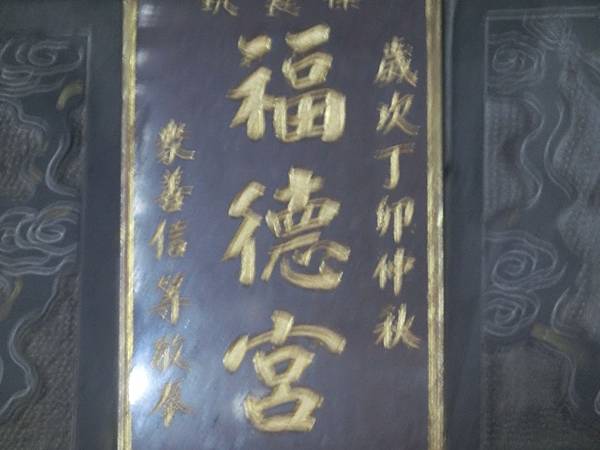 歲次丁卯仲秋
福德宮
眾善信等敬奉